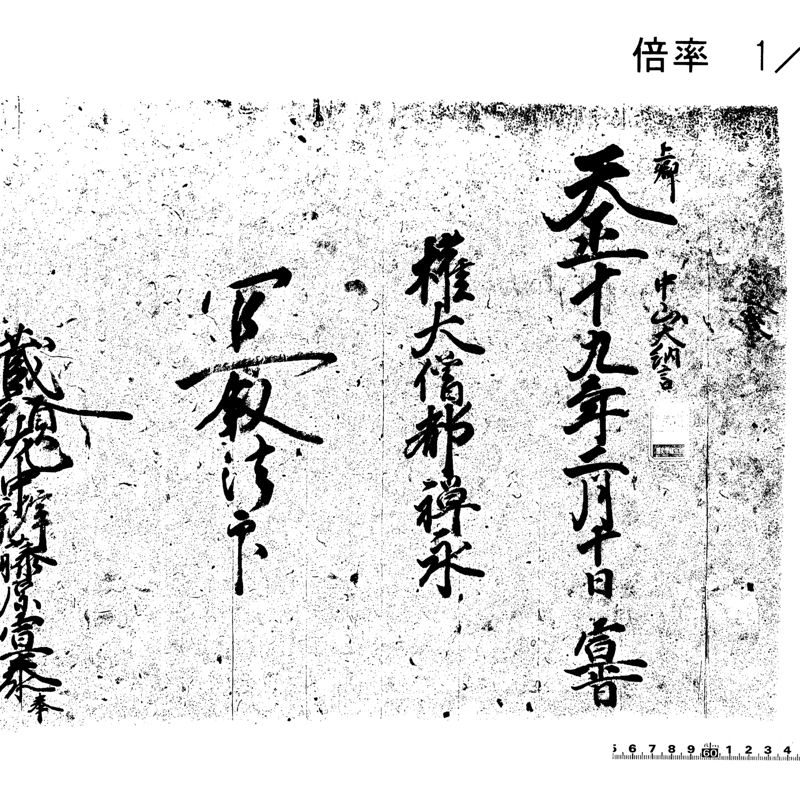 倍率 1/
上卿 中山大納言
天正十九年二月十日 宣旨
権大僧都禅永
宣叙法印
蔵人頭左中辨藤原宣泰 奉
5 6 7 8 9 60 1 2 3 4